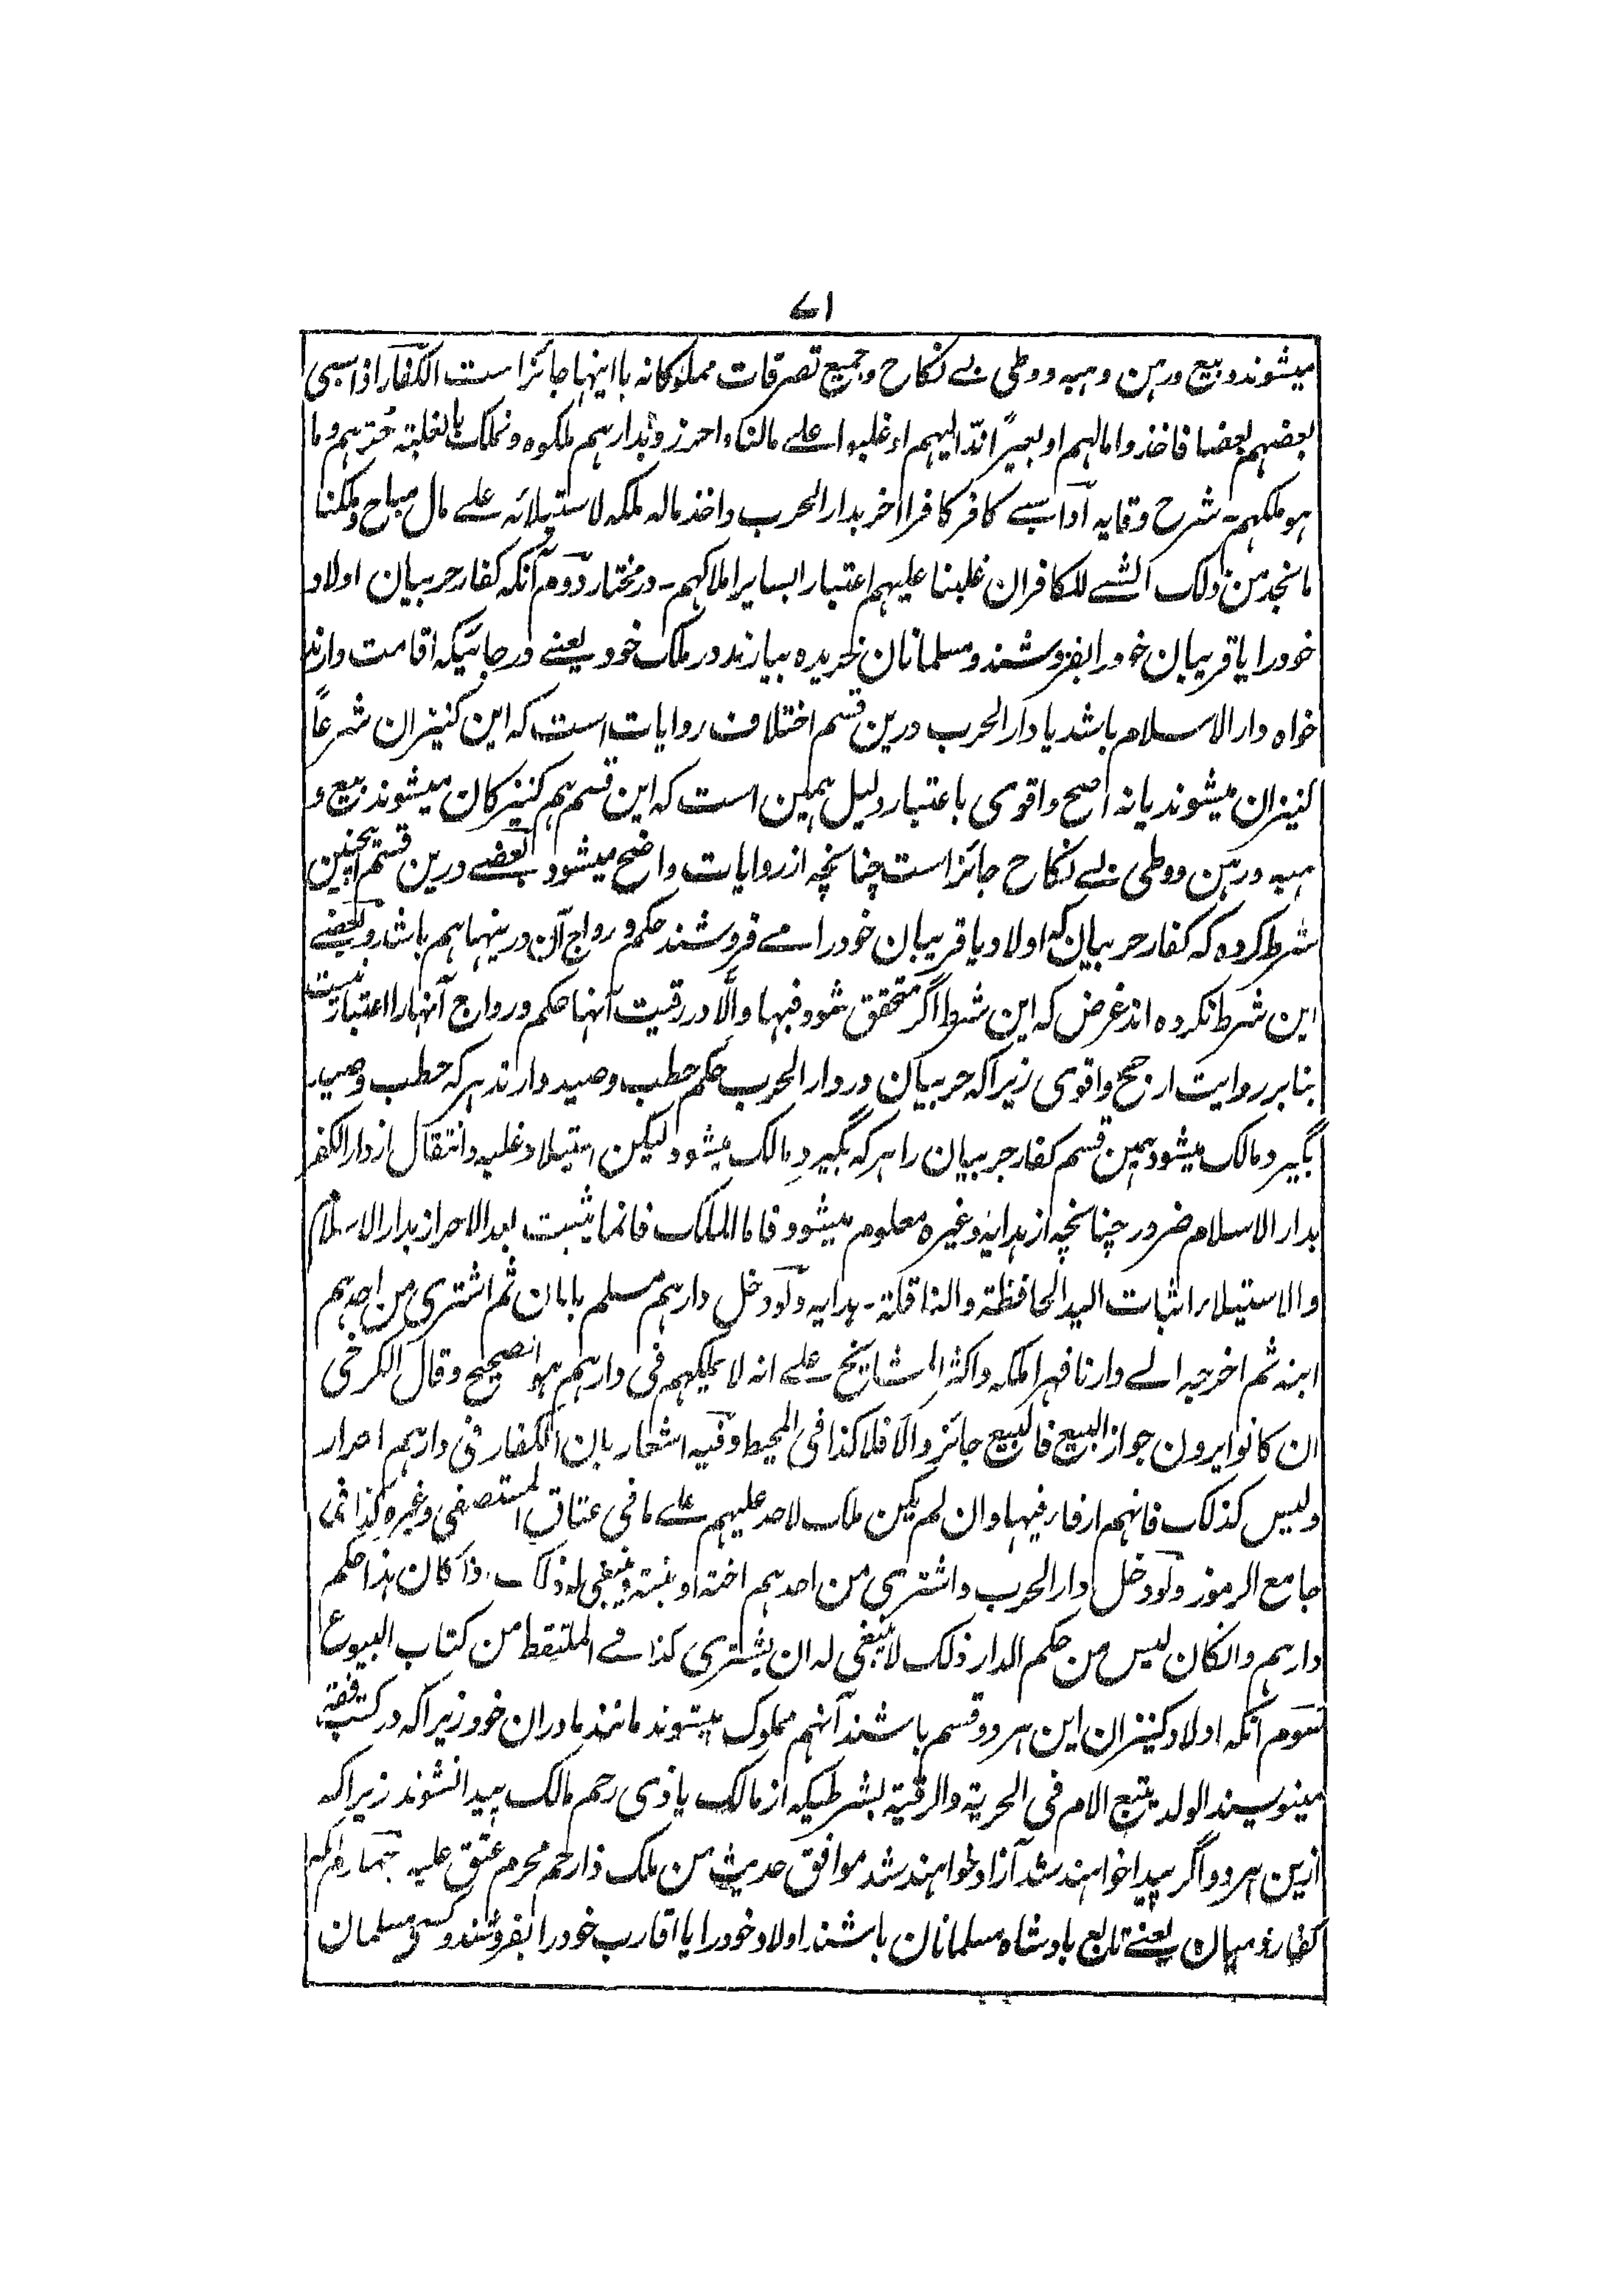 ۷۱
میشوند و بیع و رہن و ہبہ و وطی بے نکاح و جمیع تصرفات مملوکانہ با اینہا جائز است الکفار اذا سبی
بعضہم بعضا فاخذوا مالہم او بعیراً ندّ الیہم او غلبوا علے مالنا و احرزوہ بدارہم ملکوہ و نملک بالغلبۃ حُرّہم و ما
ہو ملکہم ۔ شرح وقایہ اذا سبے کافر کافرا اخر بدار الحرب و اخذ مالہ ملکہ لاستیلائہ علے مال مباح و ملکنا
ما نجد من ذلک الشے للکافر ان غلبنا علیہم اعتبارا بسایر املاکہم ۔ در مختار دوم آنکہ کفار حربیان اولاد
خود را یا قریبان خود را بفروشند و مسلمانان خریدہ بیارند در ملک خود یعنے در جائیکہ اقامت دارند
خواہ دار الاسلام باشد یا دار الحرب درین قسم اختلاف روایات است کہ این کنیزان شرعاً
کنیزان میشوند یا نہ اصح و اقوی باعتبار دلیل ہمین است کہ این قسم ہم کنیزکان میشوند بیع و
ہبہ و رہن و وطی بے نکاح جائز است چنانچہ از روایات واضح میشود بعضے درین قسم اینچنین
شرط کردہ کہ کفار حربیان کہ اولاد یا قریبان خود را مے فروشند حکم و رواج آن در ینہا ہم باشد و بعضے
این شرط نکردہ اند غرض کہ این شرط اگر متحقق شود فبہا و الّا در رقیت آنہا حکم و رواج آنہا را اعتبار نیست
بنا بر روایت ارجح و اقوی زیرا کہ حربیان در دار الحرب حکم حطب و صید دارند ہر کہ حطب و صید
بگیرد مالک میشود ہمین قسم کفار حربیان را ہر کہ بگیرد مالک میشود لیکن استیلا و غلبہ و انتقال از دار الکفر
بدار الاسلام ضرور چنانچہ از ہدایہ و غیرہ معلوم میشود فاما الملک فانما یثبت بعد الاحراز بدار الاسلام
و الاستیلاء اثبات الید الحافظۃ و الناقلۃ ۔ ہدایہ و لو دخل دارہم مسلم بامان ثم اشتری من احدہم
ابنہ ثم اخرجہ الے دارنا قہرا ملکہ و اکثر المشایخ علے انہ لا یملکہم فی دارہم ہو الصحیح و قال الکرخی
ان کانوا یرون جواز البیع فالبیع جائز و الّا فلا کذا فی المحیط و فیہ اشعار بان الکفار فی دارہم احرار
و لیس کذلک فانہم ارقاء فیہا و ان لم یکن ملک لاحد علیہم علے ما فی عتاق المستصفی و غیرہ کذا فی
جامع الرموز و لو دخل دار الحرب و اشتری من احدہم اختہ او بنتہ و ینبغی لہ ذلک اذا کان ہذا حکم
دارہم و انکان لیس من حکم الدار ذلک لا ینبغی لہ ان یشتری کذا فے الملتقط من کتاب البیوع
سوم آنکہ اولاد کنیزان این ہر دو قسم باشند آنہم مملوک میشوند مانند مادران خود زیرا کہ در کتب فقہ
مینویسند الولد یتبع الام فی الحریۃ و الرقیۃ بشرطیکہ از مالک یا ذی رحم مالک پیدا نشوند زیرا کہ
ازین ہر دو اگر پیدا خواہند شد آزاد خواہند شد موافق حدیث من ملک ذا رحم محرم عتق علیہ چہارم آنکہ
کفار ذمیان یعنے تابع بادشاہ مسلمانان باشند اولاد خود را یا اقارب خود را بفروشند و کسی مسلمان